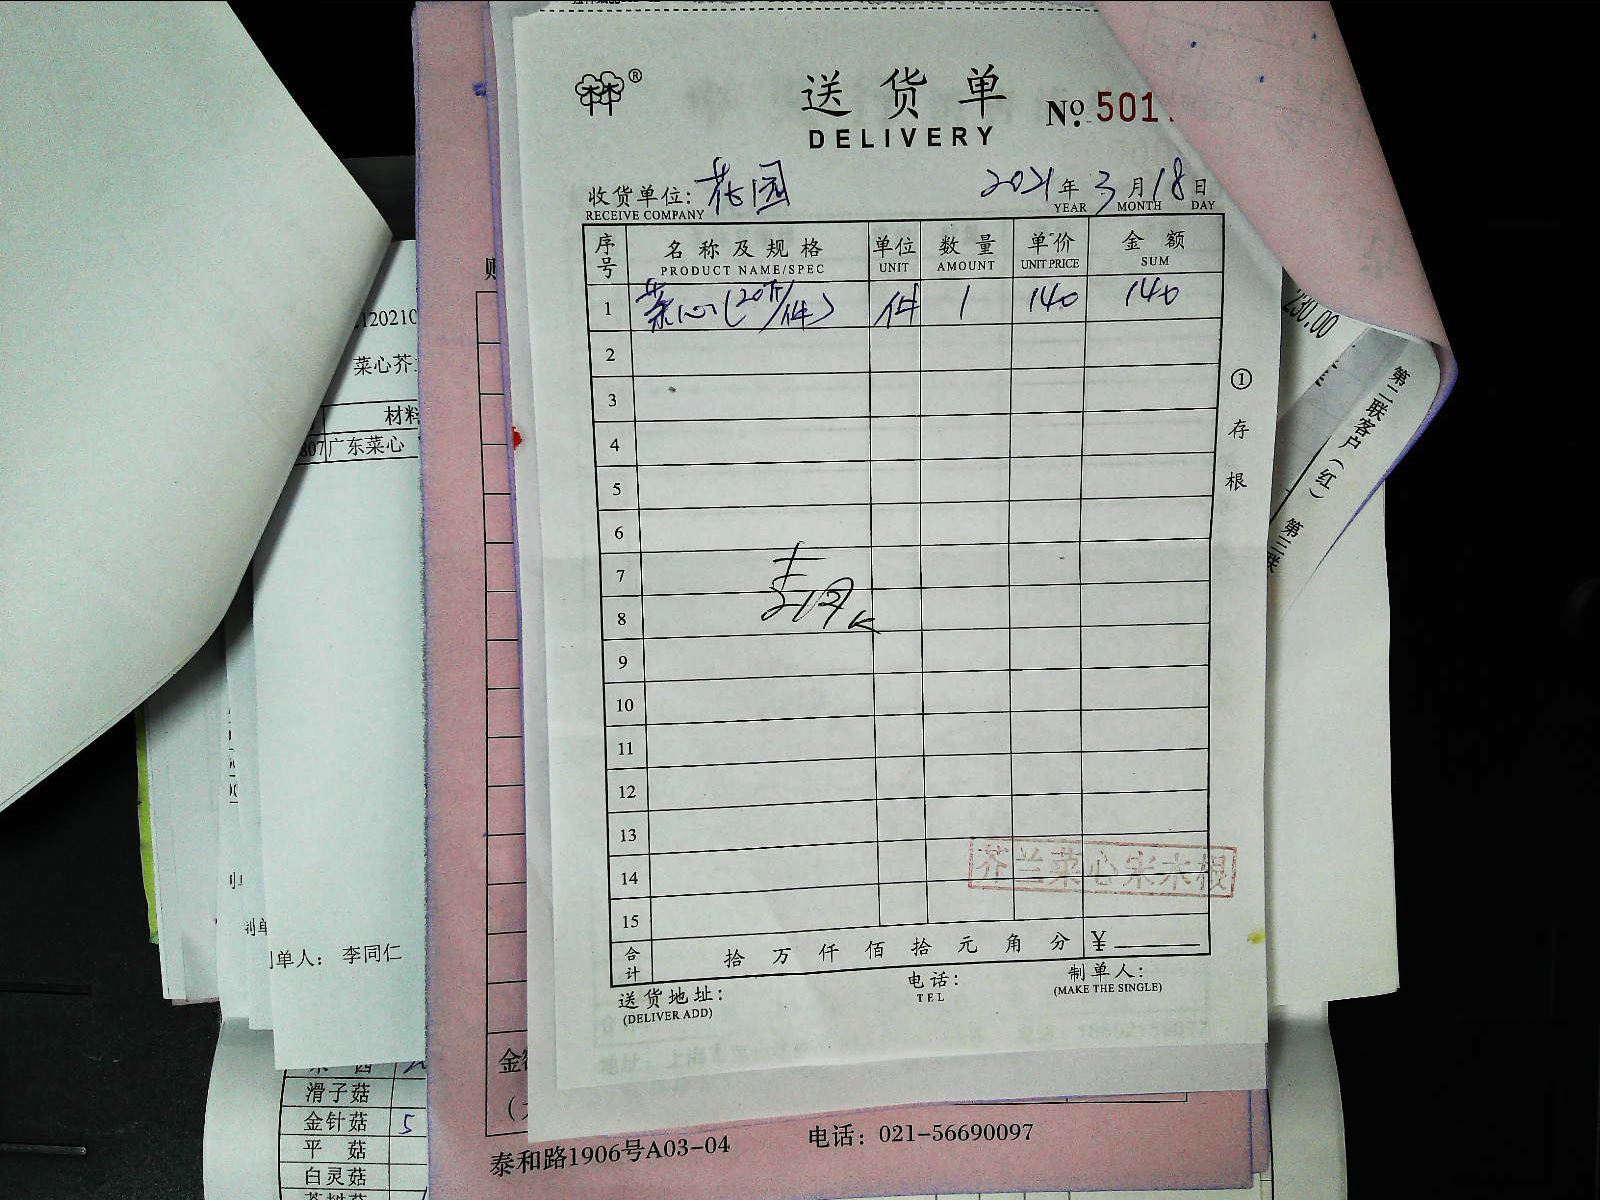 送货单
DELIVERY
№ 501
收货单位: 花园 2021年3月18日
RECEIVE COMPANY YEAR MONTH DAY
序号 名称及规格 单位 数量 单价 金额
PRODUCT NAME/SPEC UNIT AMOUNT UNIT PRICE SUM
1 菜心(20斤/件) 件 1 140 140
2
3
4
5
6
7
8
9
10
11
12
13
14
15
芥兰菜心宋木根
合计 拾 万 仟 佰 拾 元 角 分 ¥
送货地址: 电话: 制单人:
(DELIVER ADD) TEL (MAKE THE SINGLE)
①存根
230.00
第二联客户(红) 第三联
菜心芥
材料
807 广东菜心
制单人: 李同仁
滑子菇
金针菇 5
平菇
白灵菇
金
泰和路1906号A03-04 电话: 021-56690097